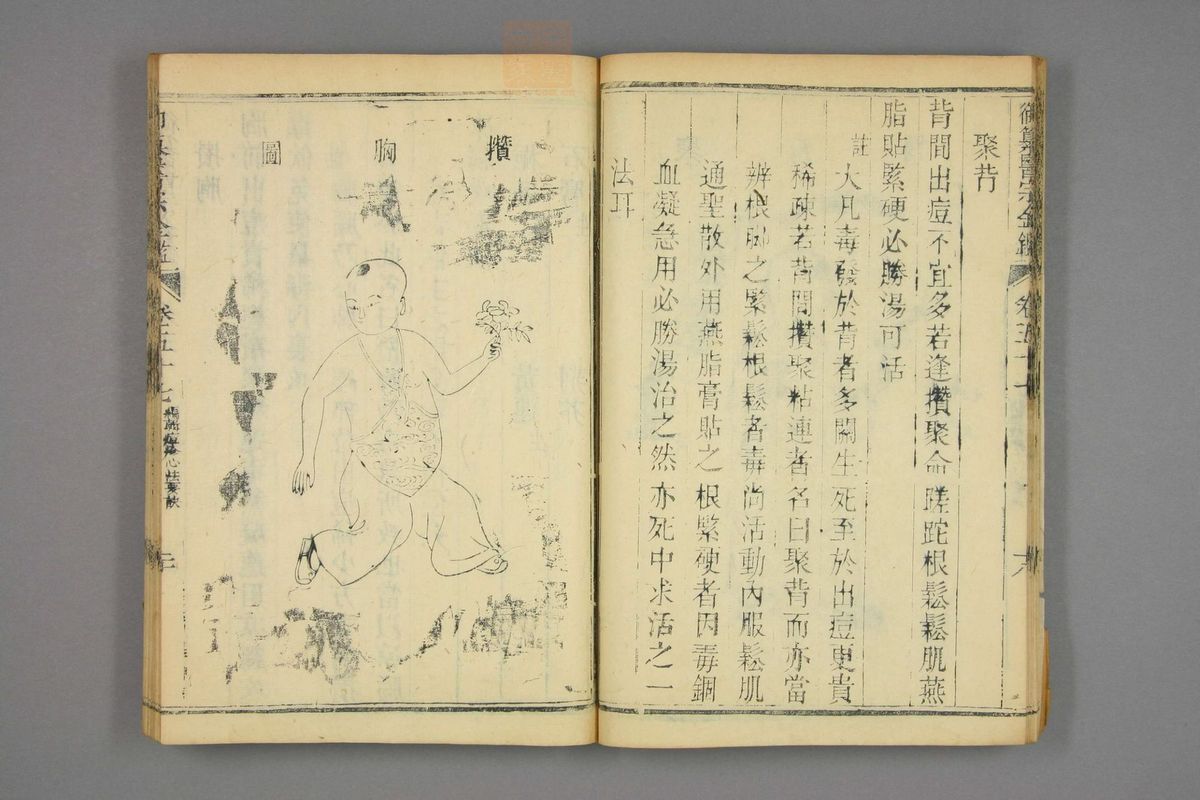 御纂醫宗金鑑
卷五十七
六
聚背
背間出痘不宜多若逢攢聚命蹉跎根鬆鬆肌燕
脂貼緊硬必勝湯可活
註
大凡毒發於背者多關生死至於出痘更貴
稀疎若背間攢聚粘連者名曰聚背而亦當
辨根脚之緊鬆根鬆者毒尚活動內服鬆肌
通聖散外用燕脂膏貼之根緊硬者因毒錮
血凝急用必勝湯治之然亦死中求活之一
法耳
攢胸圖
卷五十七
心法要訣